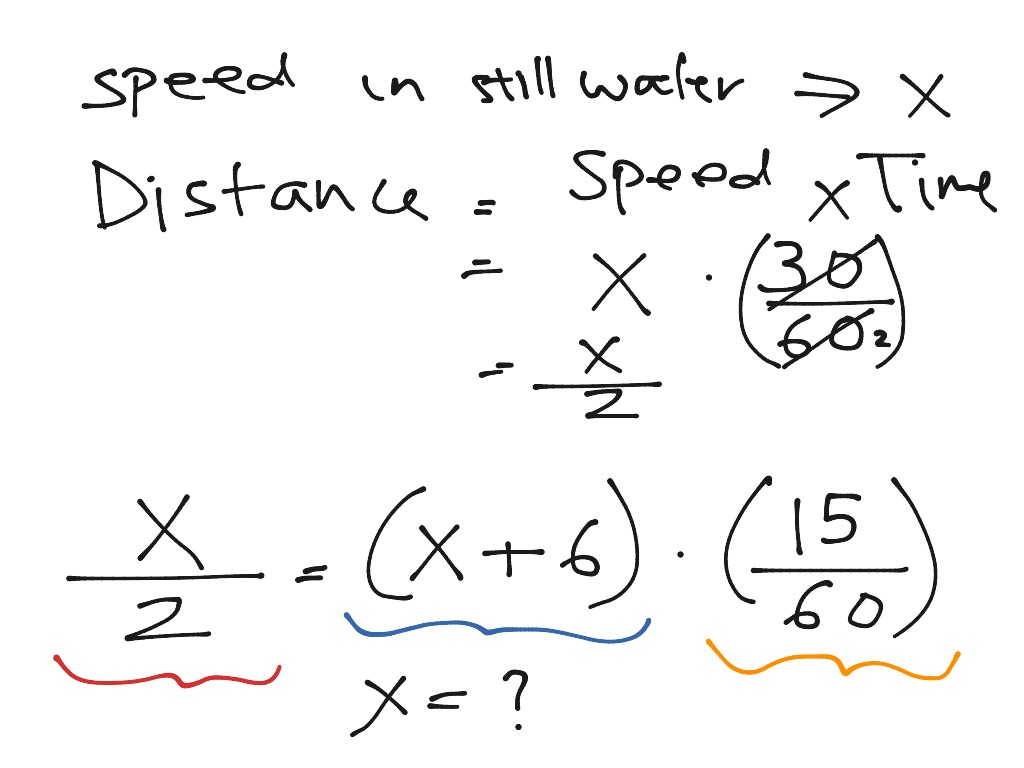 speed in still water ⇒ x
Distance = Speed x Time
= x · (30/60 2)
= x/2
x/2 = (x+6) · (15/60)
x = ?